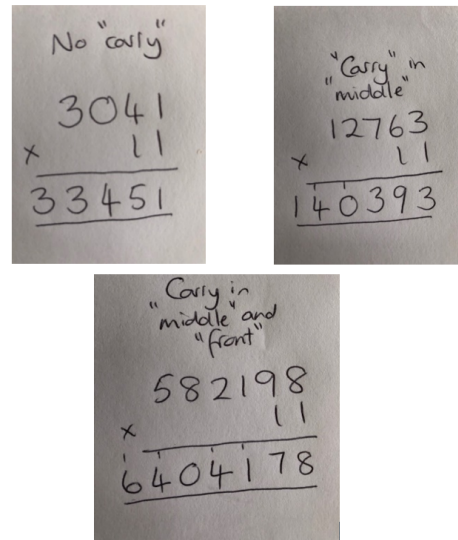 No "carry"
3041
x 11
33451
"Carry" in
"middle"
12763
x 11
140393
"Carry in
middle" and
"front"
582198
11
x
6404178